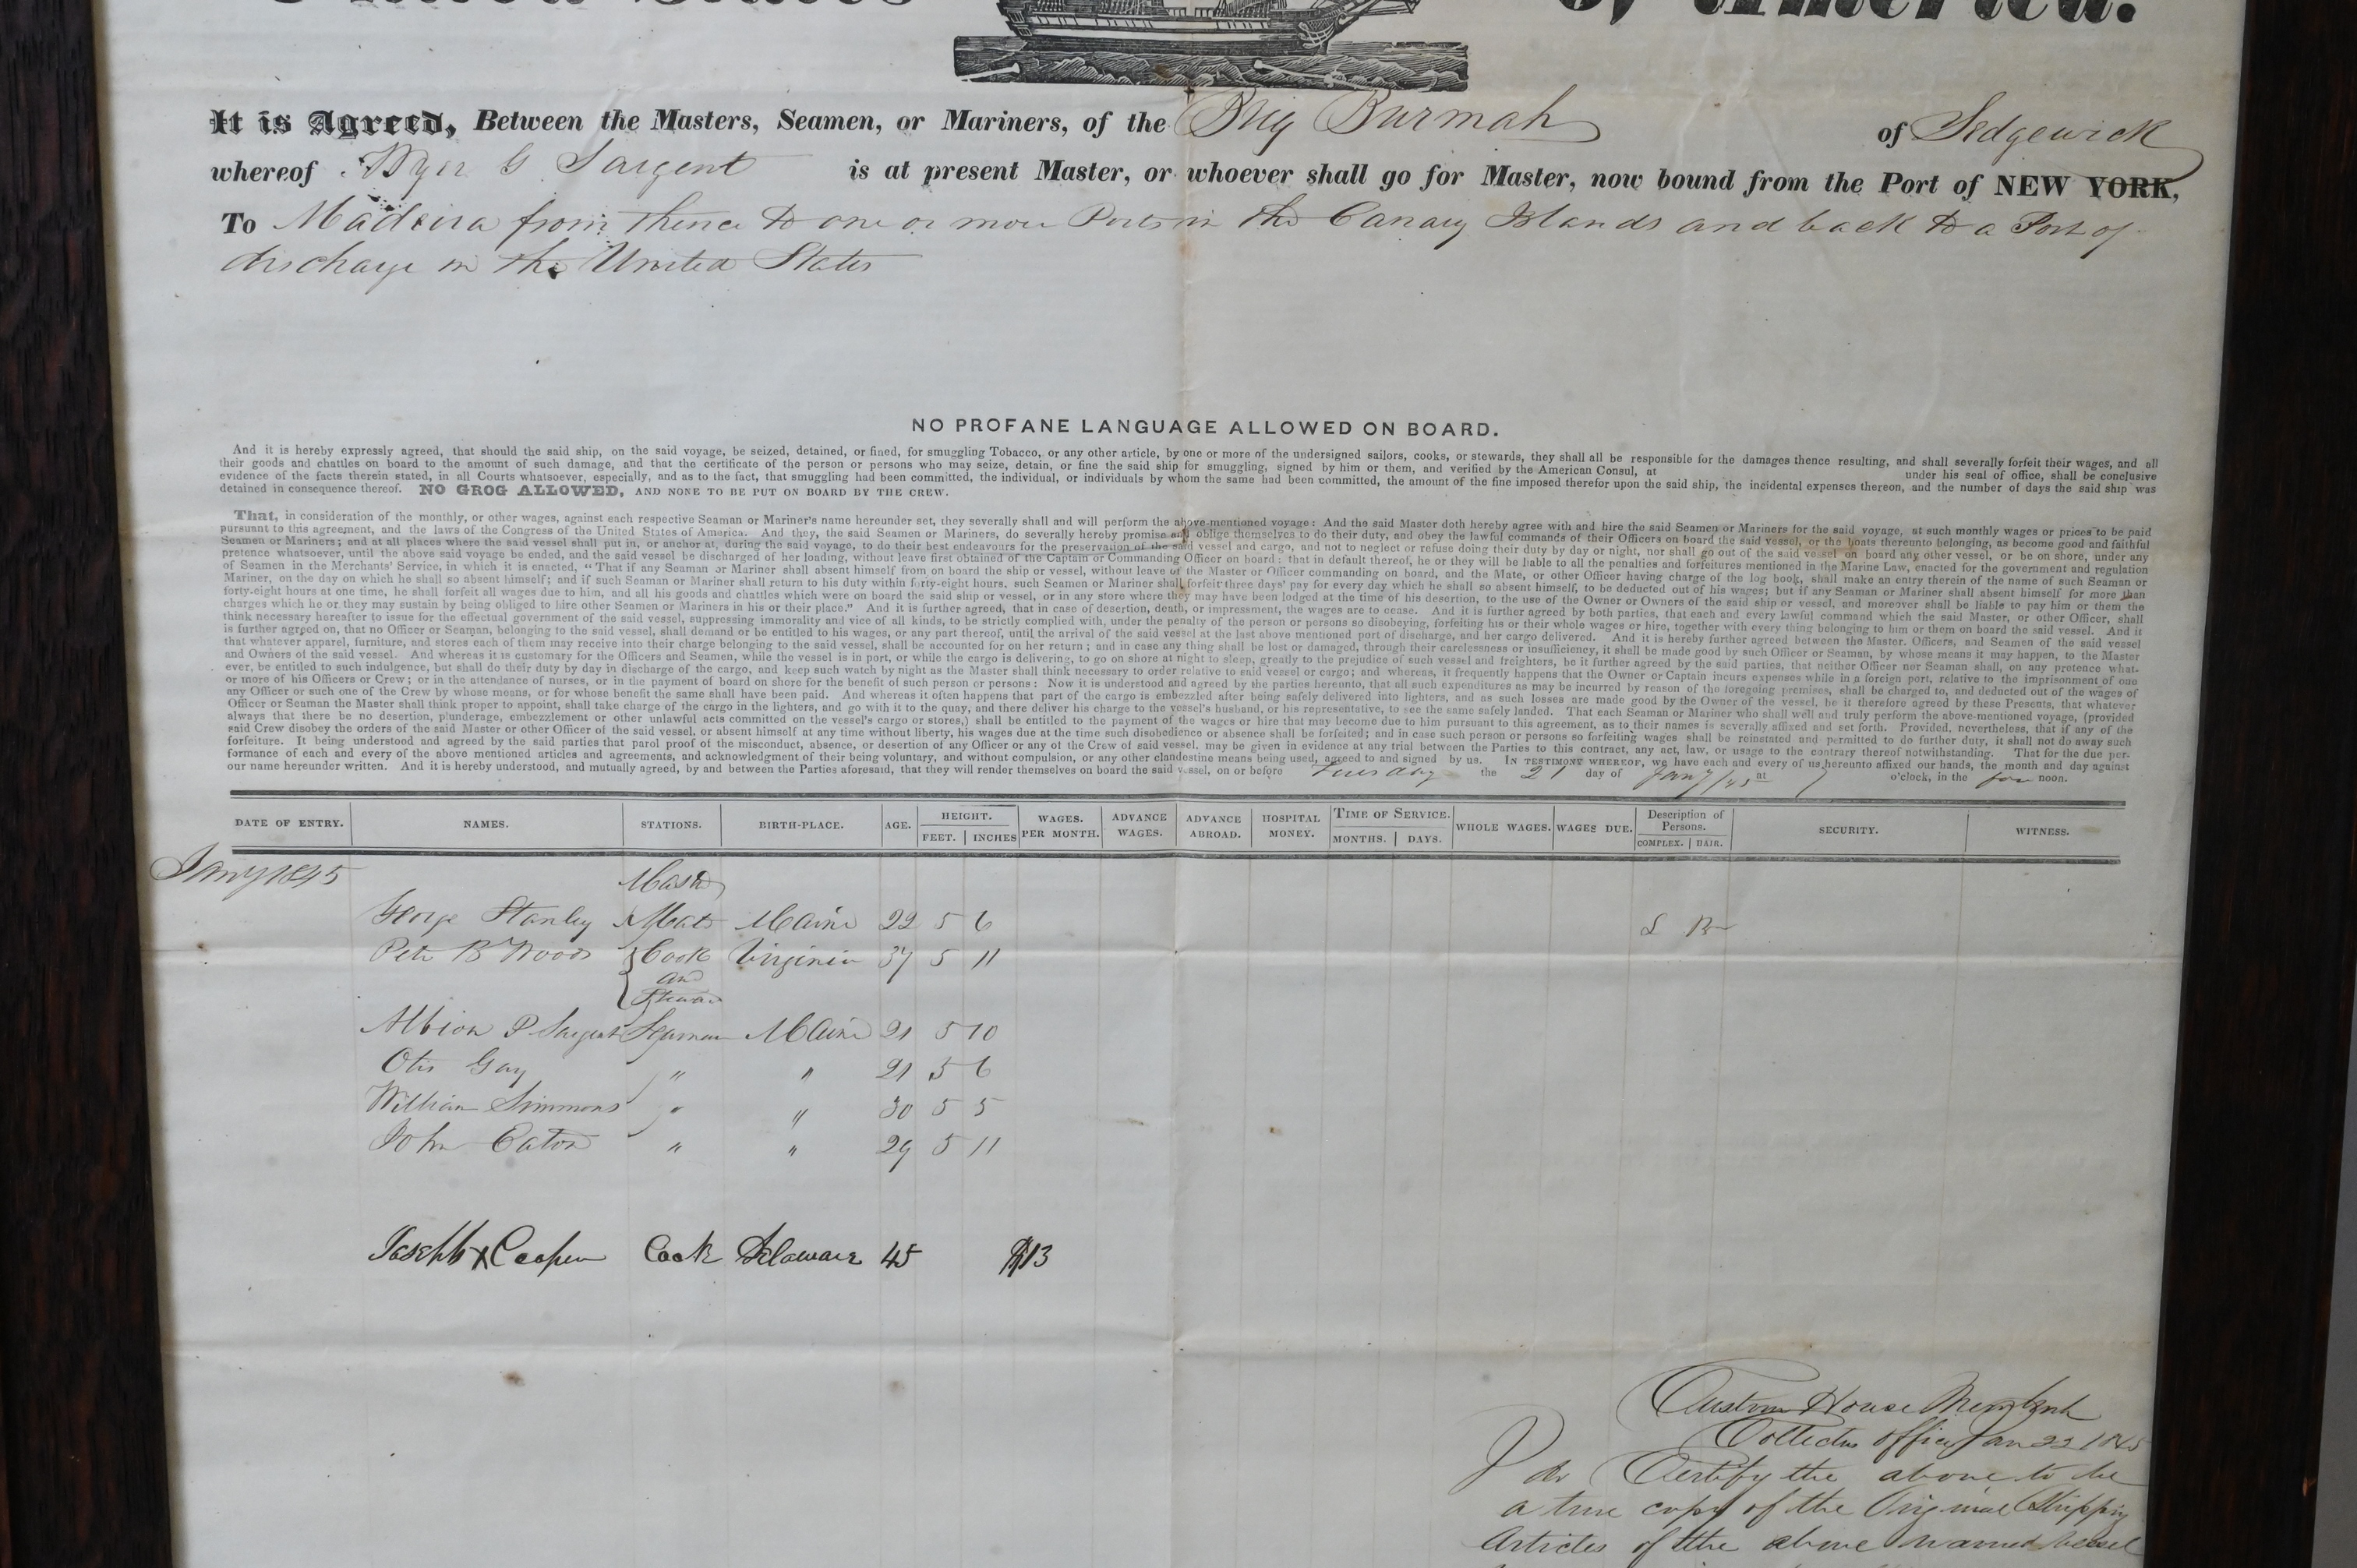 United States of America.
It is Agreed, Between the Masters, Seamen, or Mariners, of the Brig Burmah of Sedgewick
whereof Wyer G Sargent is at present Master, or whoever shall go for Master, now bound from the Port of NEW YORK,
To Madeira from thence to one or more Ports in the Canary Islands and back to a Port of
discharge in the United States
NO PROFANE LANGUAGE ALLOWED ON BOARD.
And it is hereby expressly agreed, that should the said ship, on the said voyage, be seized, detained, or fined, for smuggling Tobacco, or any other article, by one or more of the undersigned sailors, cooks, or stewards, they shall all be responsible for the damages thence resulting, and shall severally forfeit their wages, and all
their goods and chattles on board to the amount of such damage, and that the certificate of the person or persons who may seize, detain, or fine the said ship for smuggling, signed by him or them, and verified by the American Consul, at under his seal of office, shall be conclusive
evidence of the facts therein stated, in all Courts whatsoever, especially, and as to the fact, that smuggling had been committed, the individual, or individuals by whom the same had been committed, the amount of the fine imposed therefor upon the said ship, the incidental expenses thereon, and the number of days the said ship was
detained in consequence thereof. NO GROG ALLOWED, AND NONE TO BE PUT ON BOARD BY THE CREW.
That, in consideration of the monthly, or other wages, against each respective Seaman or Mariner's name hereunder set, they severally shall and will perform the above-mentioned voyage: And the said Master doth hereby agree with and hire the said Seamen or Mariners for the said voyage, at such monthly wages or prices to be paid
pursuant to this agreement, and the laws of the Congress of the United States of America. And they, the said Seamen or Mariners, do severally hereby promise and oblige themselves to do their duty, and obey the lawful commands of their Officers on board the said vessel, or the boats thereunto belonging, as become good and faithful
Seamen or Mariners; and at all places where the said vessel shall put in, or anchor at, during the said voyage, to do their best endeavours for the preservation of the said vessel and cargo, and not to neglect or refuse doing their duty by day or night, nor shall go out of the said vessel on board any other vessel, or be on shore, under any
pretence whatsoever, until the above said voyage be ended, and the said vessel be discharged of her loading, without leave first obtained of the Captain or Commanding Officer on board: that in default thereof, he or they will be liable to all the penalties and forfeitures mentioned in the Marine Law, enacted for the government and regulation
of Seamen in the Merchants' Service, in which it is enacted, "That if any Seaman or Mariner shall absent himself from on board the ship or vessel, without leave of the Master or Officer commanding on board, and the Mate, or other Officer having charge of the log book, shall make an entry therein of the name of such Seaman or
Mariner, on the day on which he shall so absent himself; and if such Seaman or Mariner shall return to his duty within forty-eight hours. such Seaman or Mariner shall forfeit three days' pay for every day which he shall so absent himself, to be deducted out of his wages; but if any Seaman or Mariner shall absent himself for more than
forty-eight hours at one time, he shall forfeit all wages due to him, and all his goods and chattles which were on board the said ship or vessel, or in any store where they may have been lodged at the time of his desertion, to the use of the Owner or Owners of the said ship or vessel, and moreover shall be liable to pay him or them the
charges which he or they may sustain by being obliged to hire other Seamen or Mariners in his or their place." And it is further agreed, that in case of desertion, death, or impressment, the wages are to cease. And it is further agreed by both parties, that each and every lawful command which the said Master, or other Officer, shall
think necessary hereafter to issue for the effectual government of the said vessel, suppressing immorality and vice of all kinds, to be strictly complied with, under the penalty of the person or persons so disobeying, forfeiting his or their whole wages or hire, together with every thing belonging to him or them on board the said vessel. And it
is further agreed on, that no Officer or Seaman, belonging to the said vessel, shall demand or be entitled to his wages, or any part thereof, until the arrival of the said vessel at the last above mentioned port of discharge, and her cargo delivered. And it is hereby further agreed between the Master. Officers, and Seamen of the said vessel
that whatever apparel, furniture, and stores each of them may receive into their charge belonging to the said vessel, shall be accounted for on her return; and in case any thing shall be lost or damaged, through their carelessness or insufficiency, it shall be made good by such Officer or Seaman, by whose means it may happen, to the Master
and Owners of the said vessel. And whereas it is customary for the Officers and Seamen, while the vessel is in port, or while the cargo is delivering, to go on shore at night to sleep, greatly to the prejudice of such vessel and freighters, be it further agreed by the said parties, that neither Officer nor Seaman shall, on any pretence what-
ever, be entitled to such indulgence, but shall do their duty by day in discharge of the cargo, and keep such watch by night as the Master shall think necessary to order relative to said vessel or cargo; and whereas, it frequently happens that the Owner or Captain incurs expenses while in a foreign port, relative to the imprisonment of one
or more of his Officers or Crew; or in the attendance of nurses, or in the payment of board on shore for the benefit of such person or persons: Now it is understood and agreed by the parties hereunto, that all such expenditures as may be incurred by reason of the foregoing premises, shall be charged to, and deducted out of the wages of
any Officer or such one of the Crew by whose means, or for whose benefit the same shall have been paid. And whereas it often happens that part of the cargo is embezzled after being safely delivered into lighters, and as such losses are made good by the Owner of the vessel, be it therefore agreed by these Presents, that whatever
Officer or Seaman the Master shall think proper to appoint, shall take charge of the cargo in the lighters, and go with it to the quay, and there deliver his charge to the vessel's husband, or his representative, to see the same safely landed. That each Seaman or Mariner who shall well and truly perform the above-mentioned voyage, (provided
always that there be no desertion, plunderage, embezzlement or other unlawful acts committed on the vessel's cargo or stores,) shall be entitled to the payment of the wages or hire that may become due to him pursuant to this agreement, as to their names is severally affixed and set forth. Provided, nevertheless, that if any of the
said Crew disobey the orders of the said Master or other Officer of the said vessel, or absent himself at any time without liberty, his wages due at the time such disobedience or absence shall be forfeited; and in case such person or persons so forfeiting wages shall be reinstated and permitted to do further duty, it shall not do away such
forfeiture. It being understood and agreed by the said parties that parol proof of the misconduct, absence, or desertion of any Officer or any of the Crew of said vessel, may be given in evidence at any trial between the Parties to this contract, any act, law, or usage to the contrary thereof notwithstanding. That for the due per-
formance of each and every of the above mentioned articles and agreements, and acknowledgment of their being voluntary, and without compulsion, or any other clandestine means being used, agreed to and signed by us. IN TESTIMONY WHEREOF, we have each and every of us hereunto affixed our hands, the month and day against
our name hereunder written. And it is hereby understood, and mutually agreed, by and between the Parties aforesaid, that they will render themselves on board the said vessel, on or before Tuesday the 21 day of Jany/45 at 7 o'clock, in the fore noon.
DATE OF ENTRY. NAMES. STATIONS. BIRTH-PLACE. AGE. HEIGHT. FEET. INCHES WAGES. PER MONTH. ADVANCE WAGES. ADVANCE ABROAD. HOSPITAL MONEY. TIME OF SERVICE. MONTHS. DAYS. WHOLE WAGES. WAGES DUE. Description of Persons. COMPLEX. HAIR. SECURITY. WITNESS.
Jany 1845 Master
George Stanley Mate Maine 22 5 6 L Br
Peter B Woods Cook Virginia 37 5 11
and
Steward
Albion P Sargent Seaman Maine 21 5 10
Otis Gay " " 21 5 6
William Simmons " " 30 5 5
John Eaton " " 29 5 11
Joseph x Cooper Cook Delaware 45 $13
Custom House New York
Collectors office Jan 22 1845
I do Certify the above to be
a true copy of the Original Shipping
Articles of the above named vessel